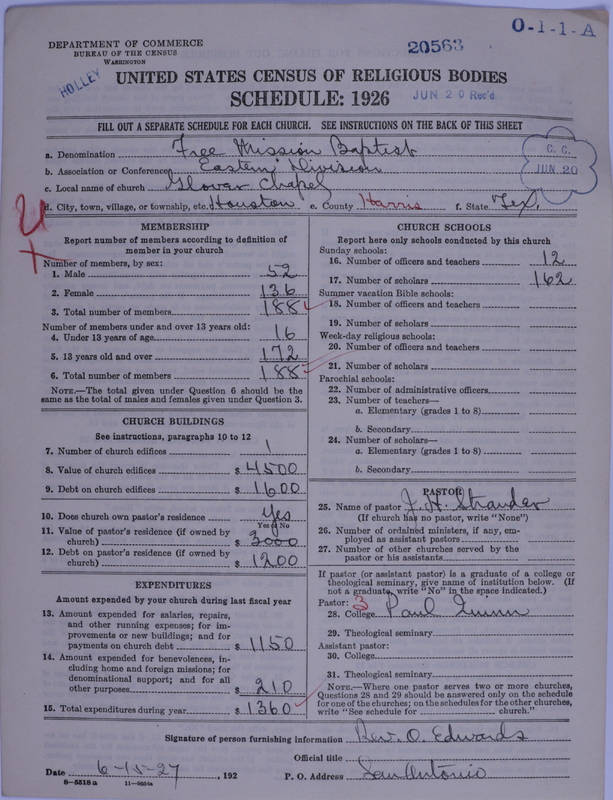 O-1-1-A
DEPARTMENT OF COMMERCE
BUREAU OF THE CENSUS
WASHINGTON
20563
HOLLEY
UNITED STATES CENSUS OF RELIGIOUS BODIES
SCHEDULE: 1926
JUN 20 Rec'd
FILL OUT A SEPARATE SCHEDULE FOR EACH CHURCH. SEE INSTRUCTIONS ON THE BACK OF THIS SHEET
a. Denomination Free Mission Baptist
b. Association or Conference Eastern Division
c. Local name of church Glover Chapel
C. C.
JUN 20
d. City, town, village, or township, etc. Houston e. County Harris f. State Tex.
MEMBERSHIP
Report number of members according to definition of
member in your church
Number of members, by sex:
1. Male 52
2. Female 136
3. Total number of members 188
Number of members under and over 13 years old:
4. Under 13 years of age 16
5. 13 years old and over 172
6. Total number of members 188
NOTE.—The total given under Question 6 should be
same as the total of males and females given under Question 3.
CHURCH BUILDINGS
See instructions, paragraphs 10 to 12
7. Number of church edifices 1
8. Value of church edifices $ 4500
9. Debt on church edifices $ 1600
10. Does church own pastor's residence Yes
Yes or No
11. Value of pastor's residence (if owned by
church) $ 3000
12. Debt on pastor's residence (if owned by
church) $ 1200
EXPENDITURES
Amount expended by your church during last fiscal year
13. Amount expended for salaries, repairs,
and other running expenses; for im-
provements or new buildings; and for
payments on church debt $ 1150
14. Amount expended for benevolences, in-
cluding home and foreign missions; for
denominational support; and for all
other purposes $ 210
15. Total expenditures during year $ 1360
CHURCH SCHOOLS
Report here only schools conducted by this church
Sunday schools:
16. Number of officers and teachers 12
17. Number of scholars 162
Summer vacation Bible schools:
18. Number of officers and teachers
19. Number of scholars
Week-day religious schools:
20. Number of officers and teachers
21. Number of scholars
Parochial schools:
22. Number of administrative officers
23. Number of teachers—
a. Elementary (grades 1 to 8)
b. Secondary
24. Number of scholars—
a. Elementary (grades 1 to 8)
b. Secondary
PASTOR
25. Name of pastor J. H. Strander
(If church has no pastor, write "None")
26. Number of ordained ministers, if any, em-
ployed as assistant pastors
27. Number of other churches served by the
pastor or his assistants
If pastor (or assistant pastor) is a graduate of a college or
theological seminary, give name of institution below. (If
not a graduate, write "No" in the space indicated.)
Pastor: 3
28. College Paul Quinn
29. Theological seminary
Assistant pastor:
30. College
31. Theological seminary
NOTE.—Where one pastor serves two or more churches,
Questions 28 and 29 should be answered only on the schedule
for one of the churches; on the schedules for the other churches,
write "See schedule for church."
Signature of person furnishing information Rev. O. Edwards
Official title
Date 6-15-27, 192 P. O. Address San Antonio
8-5518 a 11-9054a